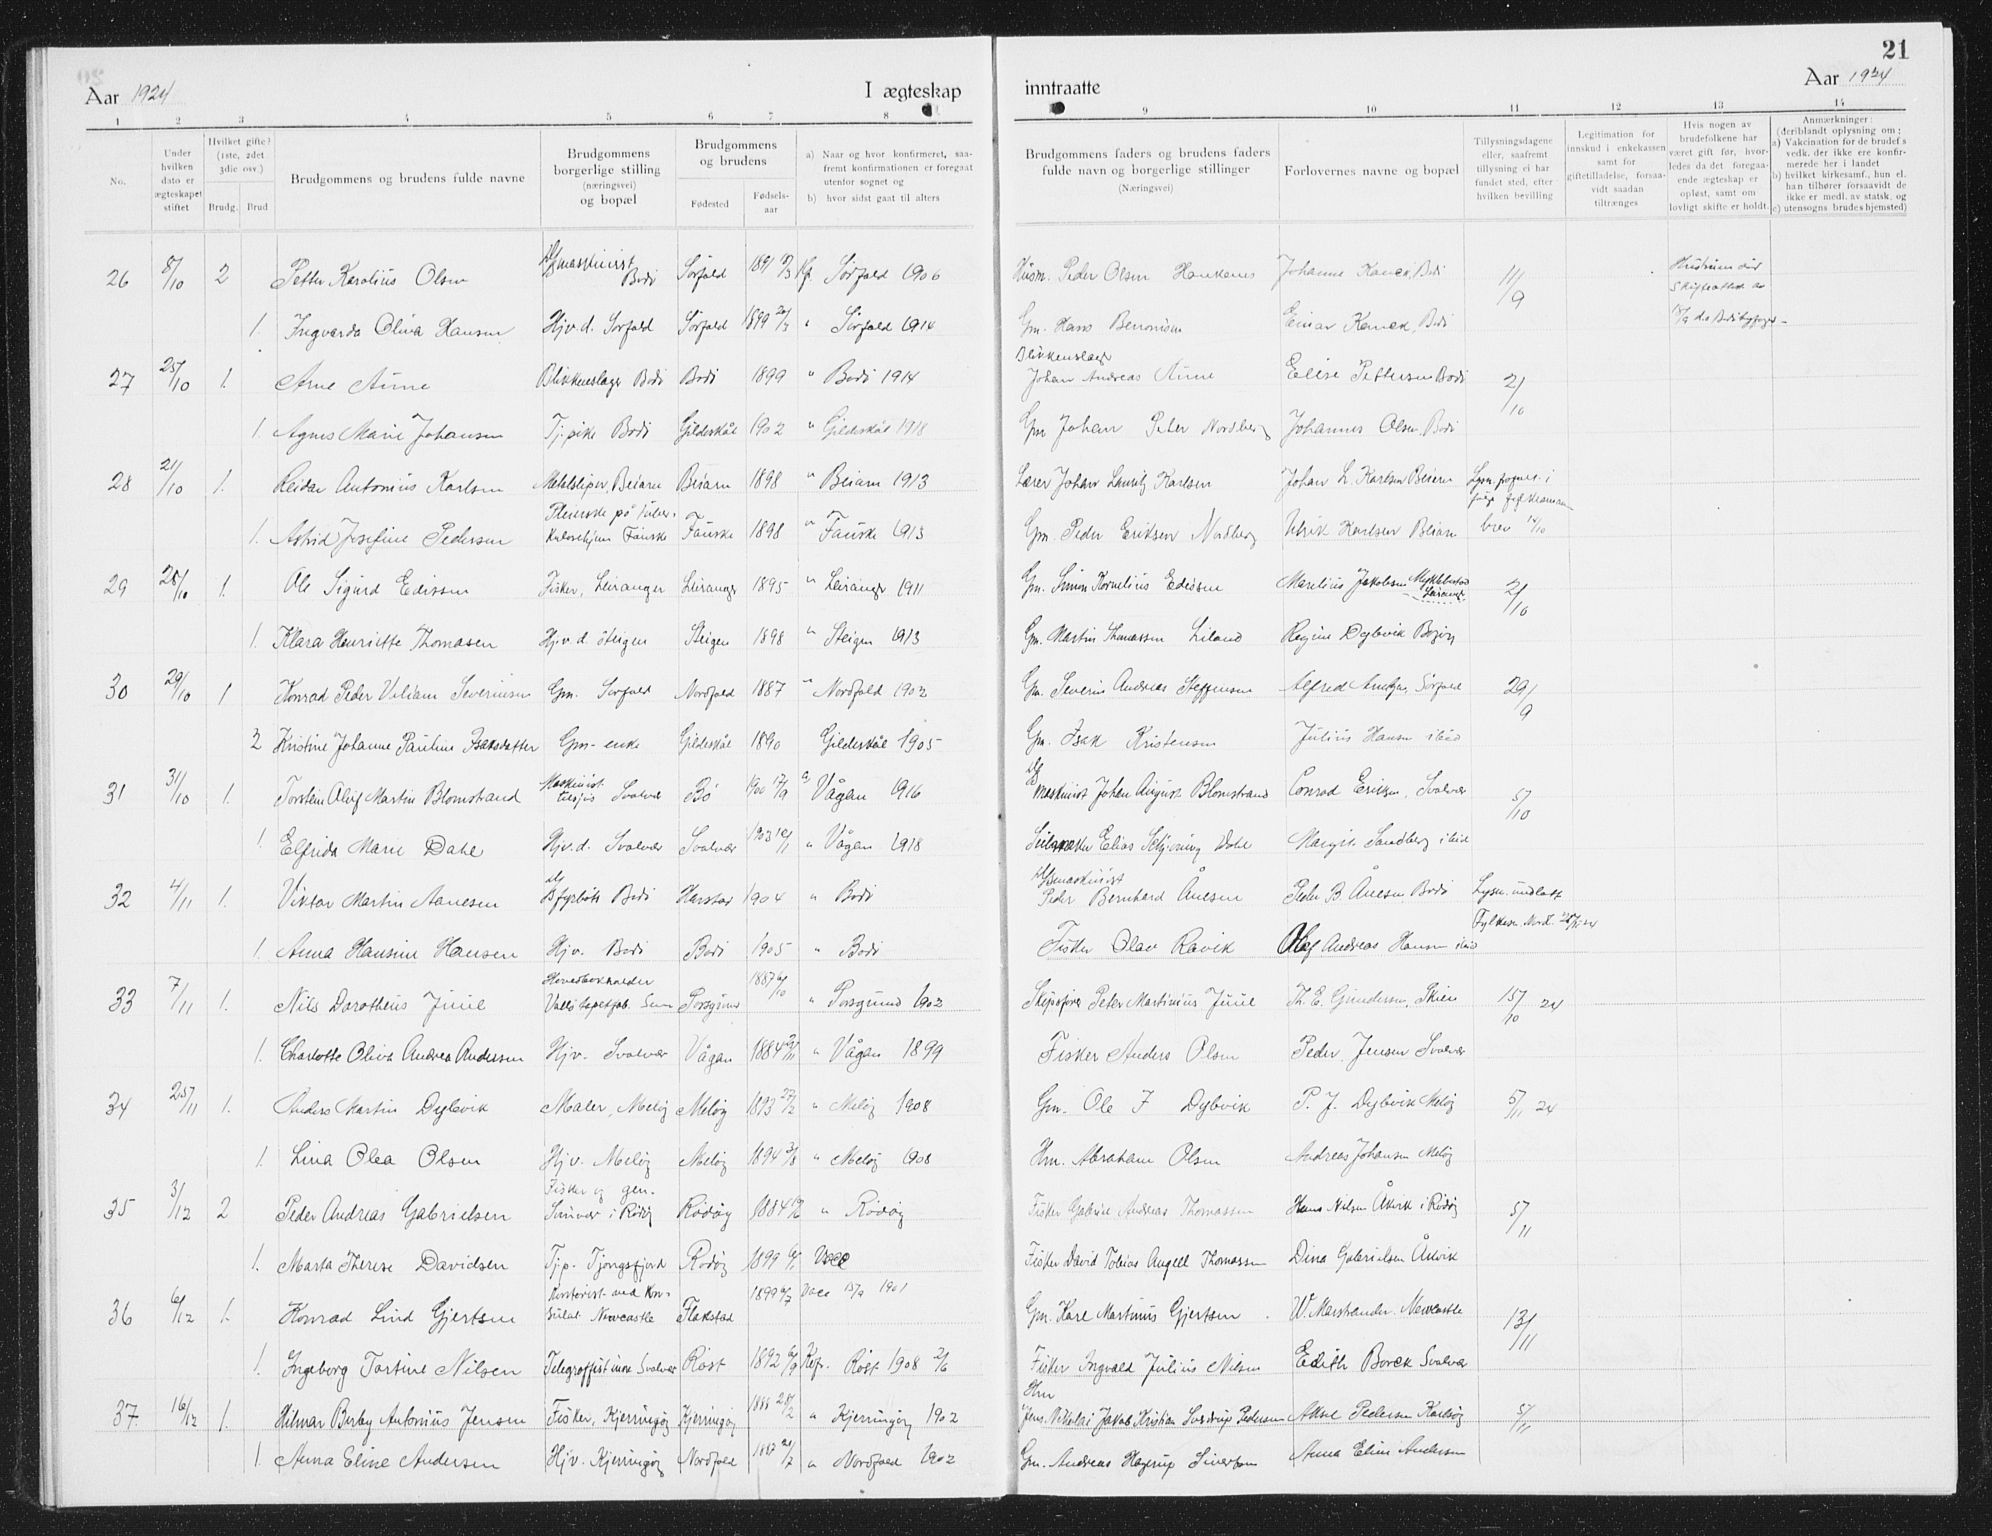 21
Aar 1924
I ægteskap
inntraatte
Aar 1924
1 2 3 4 5 6 7 8 9 10 11 12 13 14
No.
Under hvilken dato er ægteskapet stiftet
Hvilket gifte? (1ste, 2det 3die osv.)
Brudg. Brud
Brudgommens og brudens fulde navne
Brudgommens borgerlige stilling (næringsvei) og bopæl
Brudgommens og brudens
Fødested
Fødsels-aar
a) Naar og hvor konfirmeret, saa-fremt konfirmationen er foregaat utenfor sognet og
b) hvor sidst gaat til alters
Brudgommens faders og brudens faders fulde navn og borgerlige stillinger (Næringsvei)
Forlovernes navne og bopæl
Tillysningsdagene eller, saafremt tillysning ei har fundet sted, efter hvilken bevilling
Legitimation for innskud i enkekassen samt for giftetilladelse, forsaa-vidt saadan tiltrænges
Hvis nogen av brudefolkene har været gift før, hvor-ledes da det foregaa-ende ægteskap er opløst, samt om lovligt skifte er holdt.
Anmærkninger: (deriblandt oplysning om: a) Vakcination for de brudef s vedk. der ikke ere konfir-merede her i landet b) hvilket kirkesamf., hun el. han tilhører forsaavidt de ikke er medl. av statsk. og c) utensogns brudes hjemsted)
26 8/10 2 Petter Karolius Olsen maskinist Bodi Sörfold 1891 Kf. Sörfold 1906 Husm. Peder Olsen Haukenes Johanne Kanck, Bodi 11/9
1. Ingvarda Oliva Hansen Hjv.d. Sörfold Sörfold 1899 " Sörfold 1914 Gm. Hans Beronisen Einar Kanck, Bodi
27 25/10 1. Arne Aune Blikkenslager Bodi Bodi 1899 " Bodi 1914 Blikkenslager Johan Andreas Aune Elise Pettersen Bodi 2/10
1. Agnes Marie Johansen Tj.pike Bodi Gildeskål 1902 " Gildeskål 1918 Gm Johan Peter Nordberg Johannes Olsen, Bodi
28 21/10 1. Reidar Antonius Karlsen Metalsliper, Beiarn Beiarn 1898 " Beiarn 1913 Lærer Johan Lauritz Karlsen Johan L. Karlsen Beiarn
1. Astrid Josefine Pedersen Pleierske på Tuber-kulosehjem Fauske Fauske 1898 " Fauske 1913 Gm. Peder Eriksen Nordberg Ulrik Karlsen Beiarn brev 14/10
29 25/10 1. Ole Sigurd Edissen Fisker, Leiranger Leiranger 1895 " Leiranger 1911 Gm. Simon Kornelius Edissen Marelius Jakobsen Myklebostad Leiranger 2/10
1. Klara Henriette Thomasen Hjv.d. Steigen Steigen 1898 " Steigen 1913 Gm. Martin Thomassen Liland Regine Dybvik Bogöy
30 29/10 1 Konrad Peder Viliam Severinsen Gm. Sörfold Nordfold 1887 " Nordfold 1902 Gm. Severin Andreas Steffensen Alfred Amtzen, Sörfold 29/9
2 Kristine Johanne Pauline Isaksdatter Gm-enke Gildeskål 1890 Gildeskål 1905 Gm. Isak Kristensen Julius Hansen ibid
31 31/10 1. Torstein Oluf Martin Blomstrand Maskinist Svolvær Bö 1900 17/9 a) Vågan 1916 maskinist Johan August Blomstrand Conrad Eriksen, Svolvær 5/10
1. Elfrida Marie Dahl Hjv.d. Svolvær Svolvær 1903 " Vågan 1918 Seilmaker Elias Schjöning Dahl Margit Sandberg ibid
32 4/11 1. Viktor Martin Aanesen fyrböt. Bodi Harstad 1904 " Bodi maskinist Peder Bernhard Ånesen Peder B. Ånesen Bodi Lysn. undlatt
1. Anna Hansine Hansen Hjv. Bodi Bodi 1905 " Bodi Fisker Olav Ravik Olaf Andreas Hansen ibid
33 7/11 1. Nils Dorotheus Juul Hovedbokholder Vallö tapetfab. Sem Porsgrund 1887 " Porsgrund 1902 Skipsförer Peter Martinius Juul Th. E. Gundersen, Skien 15/10 24
1. Charlotte Oliva Andrea Andersen Hjv. Svolvær Vågan 1884 " Vågan 1899 Fisker Anders Olsen Peder Jensen Svolvær
34 25/11 1. Anders Martin Dybvik Maler, Melöy Melöy 1893 27/2 " Melöy 1908 Gm. Ole J Dybvik P. J. Dybvik Melöy 5/11 24
1. Lina Olea Olsen Hjv. Melöy Melöy 1894 3/8 " Melöy 1908 Hm. Abraham Olsen Andreas Johansen Melöy
35 3/12 2 Peder Andreas Gabrielsen Fisker og gm. i Rödöy Rödöy 1884 " Rödöy Fisker Gabriel Andreas Thomassen Hans Nilsen Åkvik i Rödöy 5/11
1. Marta Therese Davidsen Tj.p. Tjongsfjord Rödöy 1899 Vacc Fisker David Tobias Angell Thomassen Dina Gabrielsen Åkvik
36 6/12 1. Konrad Lind Gjertsen Kontorist ved Kon-sulat Newcastle Flakstad 1899 Vacc 15/9 1901 Gm. Kare Martinus Gjertsen W. Marstrander. Newcastle 13/11
1. Ingeborg Tortine Nilsen Telegrafistinne Svolvær Röst 1892 Kofr. Röst 1908 2/6 Fisker Ingvald Julius Nilsen Edith Borck Svolvær
37 16/12 1. Hilmar Berby Antonius Jensen Fisker, Kjerringöy Kjerringöy 1888 28/2 " Kjerringöy 1902 Hm Jens Nikolai Jakob Kristian Sverdrup Pedersen Aksel Pedersen Karlsöy 5/11
1. Anna Eline Andersen Hjv. Kjerringöy Nordfold 1887 " Nordfold 1902 Gm. Andreas Hagerup Sivertsen Anna Eline Andersen